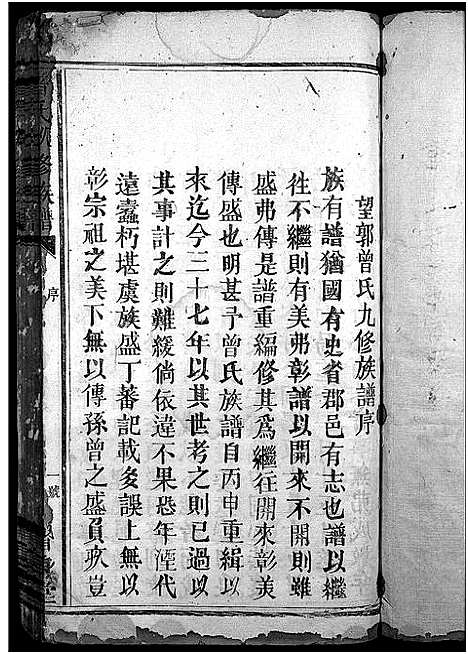 望郭曾氏九修族譜序
族有譜猶國有史省郡邑有志也譜以繼
徃不繼則有美弗彰譜以開來不開則雖
盛弗傳是譜重編修其爲繼往開來彰美
傳盛也明甚予曾氏族譜自丙申重緝以
來迄今三十七年以其世考之則已過以
其事計之則難緩倘依違不果恐年湮代
遠蠹朽堪虞族盛丁蕃記載多誤上無以
彰宗祖之美下無以傳孫曾之盛負疚豈
修族譜
序
一
號